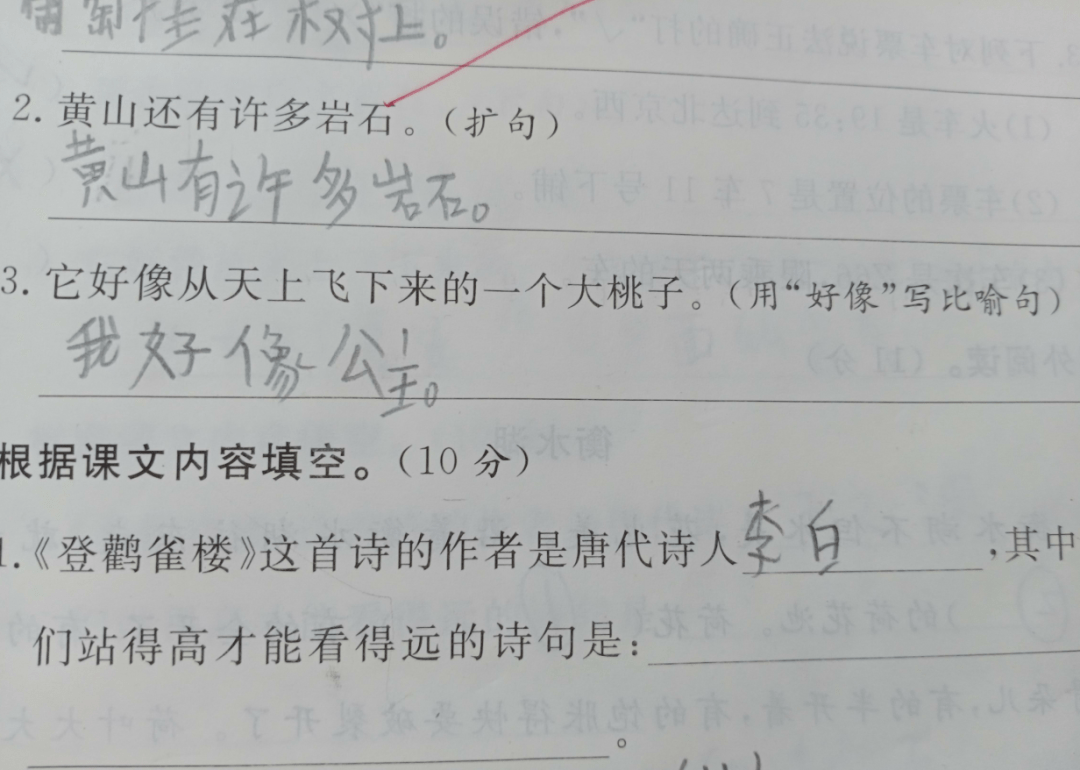 葡萄挂在校对上。
2.黄山还有许多岩石。(扩句)
黄山有许多岩石。
3.它好像从天上飞下来的一个大桃子。(用“好像”写比喻句)
我好像公主。
根据课文内容填空。(10分)
1.《登鹳雀楼》这首诗的作者是唐代诗人李白,其中
们站得高才能看得远的诗句是:
。